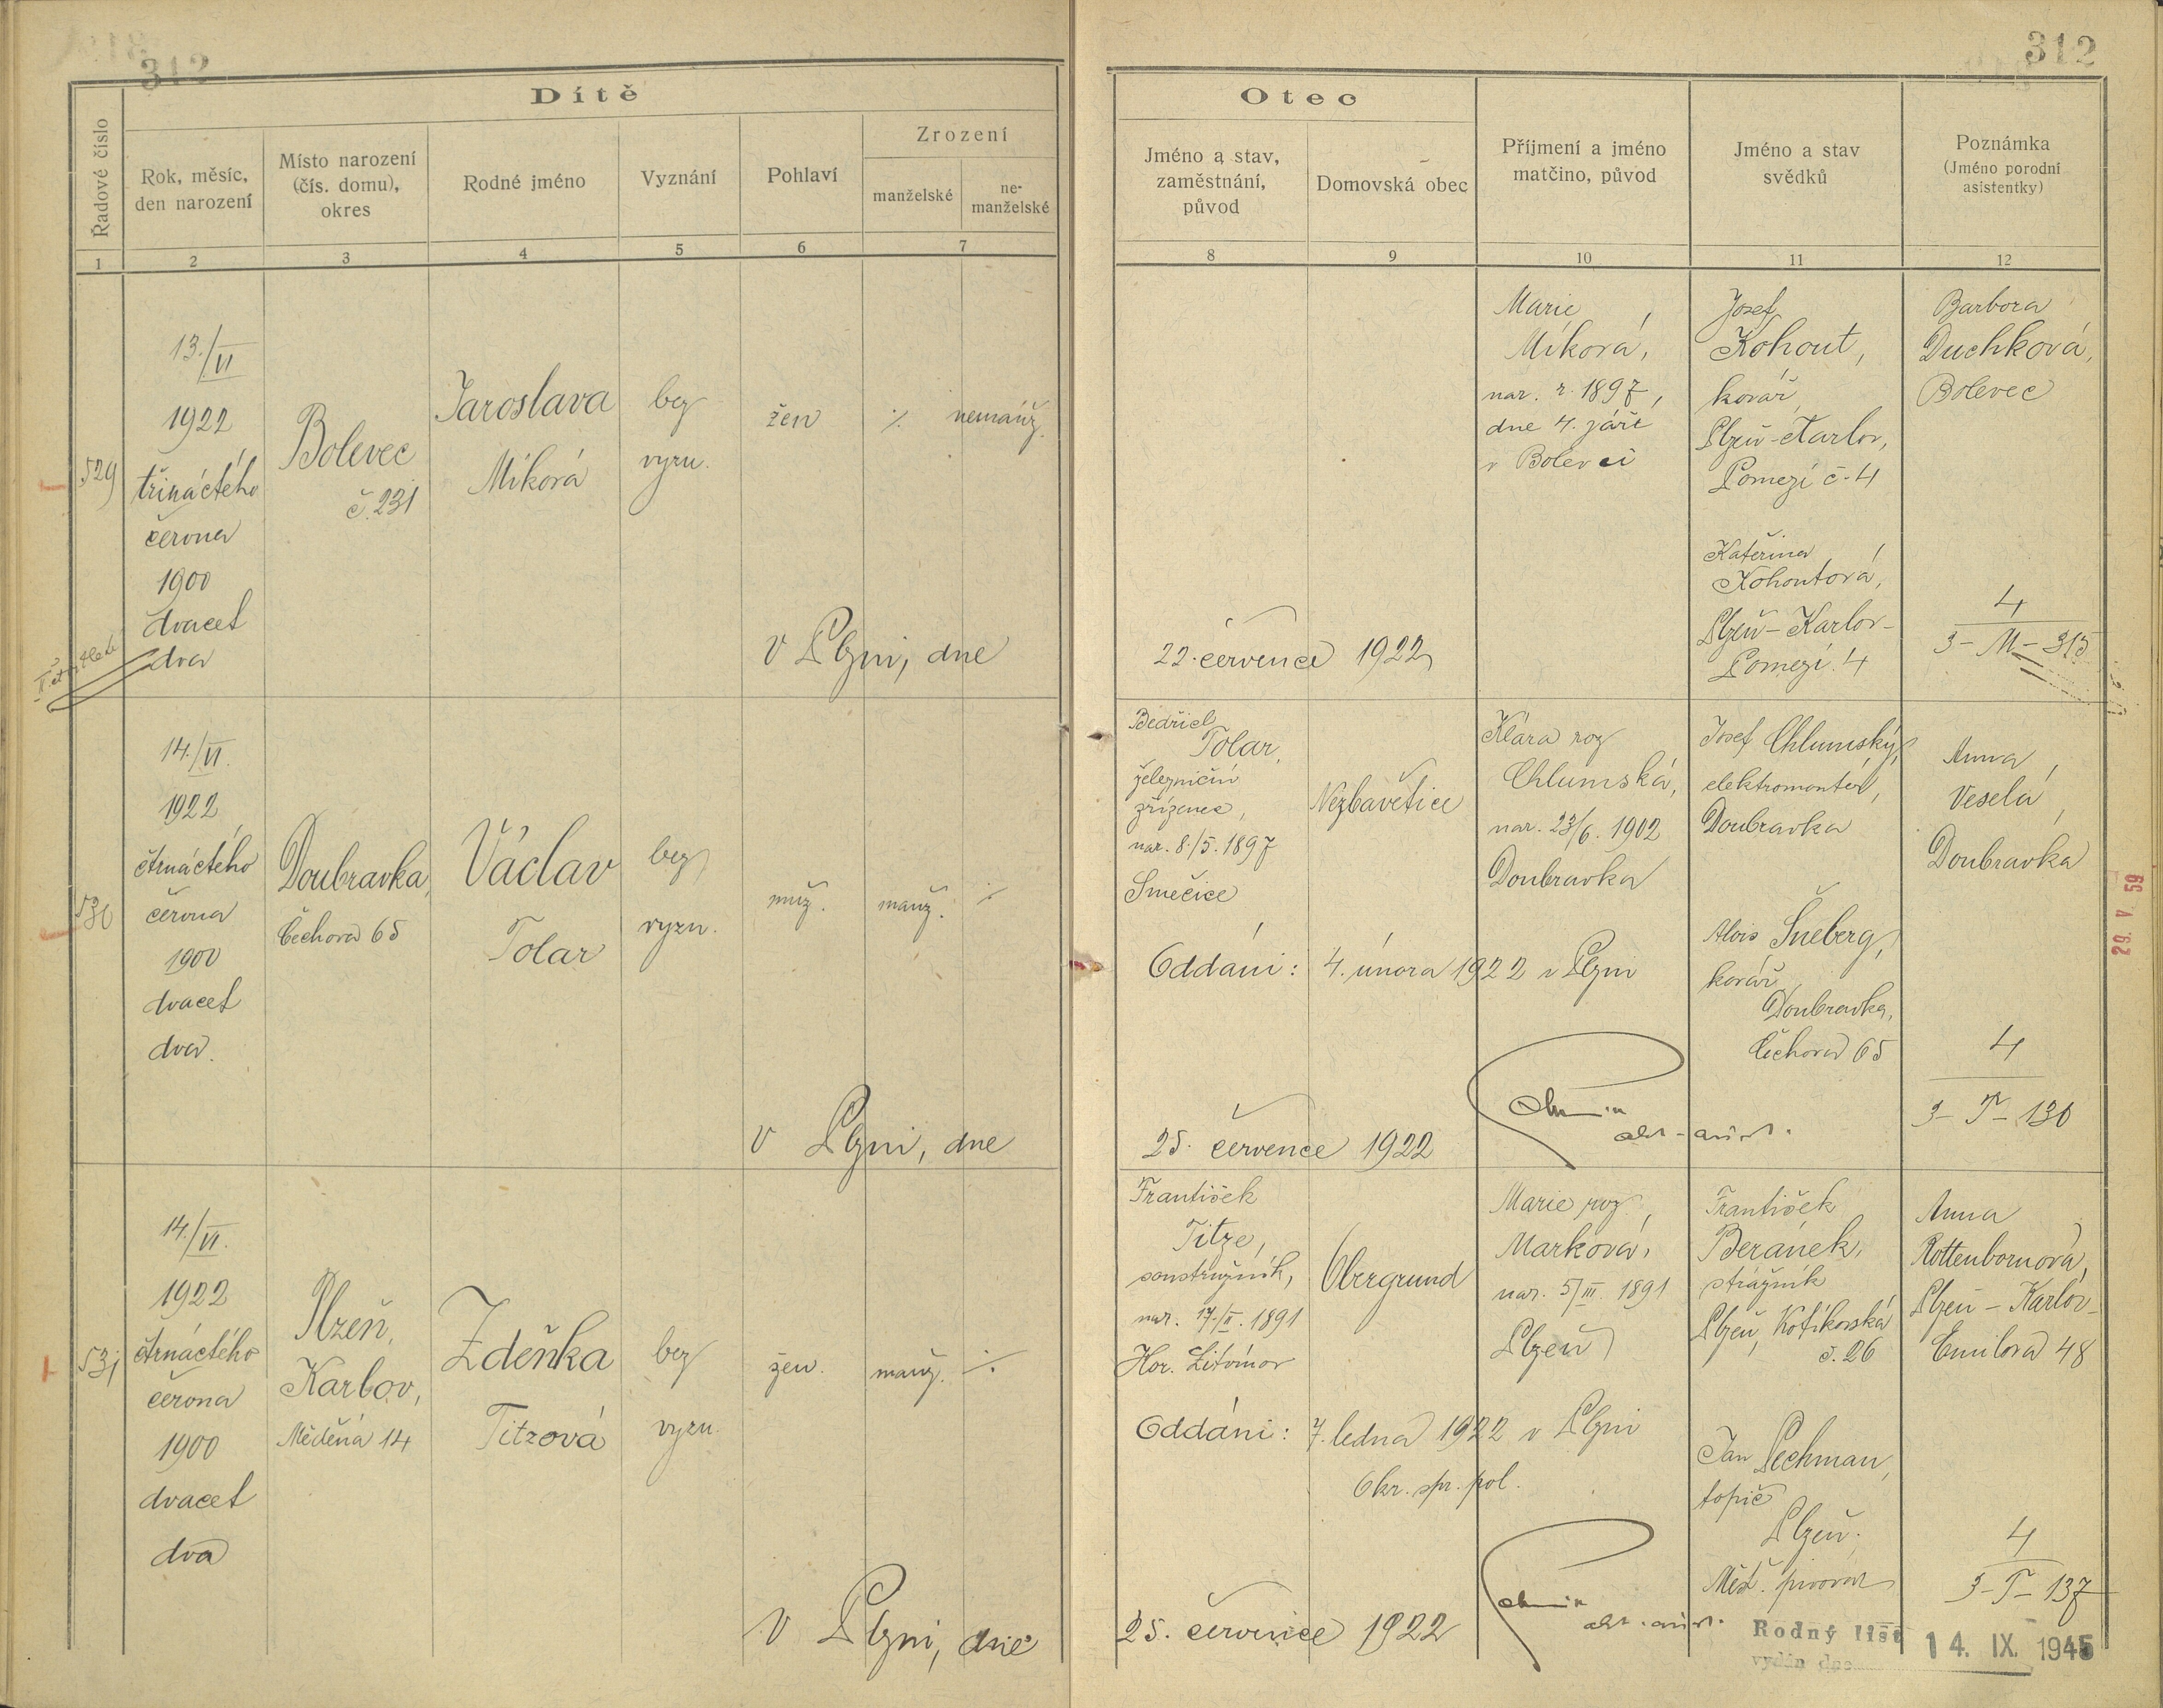 312
312
Dítě
Otec
Řadové číslo
Rok, měsíc,
den narození
Místo narození
(čís. domu),
okres
Rodné jméno
Vyznání
Pohlaví
Zrození
manželské
ne-
manželské
Jméno a stav,
zaměstnání,
původ
Domovská obec
Příjmení a jméno
matčino, původ
Jméno a stav
svědků
Poznámka
(Jméno porodní
asistentky)
1 2 3 4 5 6 7 8 9 10 11 12
529
13./VI
1922
třináctého
června
1900
dvacet
dva
Bolevec
č. 231
Jaroslava
Míková
bez
vyzn.
žen
·/.
nemanž.
V Plzni, dne
22. července 1922
Marie
Míková,
nar. r. 1897,
dne 4. září
v Bolevci
Josef
Kohout,
kovář,
Plzeň-Karlov,
Pomezí č. 4
Kateřina
Kohoutová,
Plzeň-Karlov-
Pomezí 4
Barbora
Duchková,
Bolevec
4
3-M-315
530
14./VI.
1922
čtrnáctého
června
1900
dvacet
dva.
Doubravka,
Čechova 65
Václav
Tolar
bez
vyzn.
muž.
manž.
·/.
V Plzni, dne
25. července 1922
Bedřich
Tolar,
železniční
zřízenec,
nar. 8./5. 1897
Smečice
Nezbavětice
Oddáni: 4. února 1922 v Plzni
Klára roz
Chlumská,
nar. 23/6. 1902
Doubravka
Josef Chlumský,
elektromontér,
Doubravka
Alois Šneberg,
kovář,
Doubravka,
Čechova 65
Anna
Veselá,
Doubravka
4
3-T-136
29. V. 59
531
14./VI.
1922
čtrnáctého
června
1900
dvacet
dva
Plzeň,
Karlov,
Měděná 14
Zdeňka
Titzová
bez
vyzn.
žen.
manž.
·/.
V Plzni, dne
25. července 1922
František
Titze,
soustružník,
nar. 17./II. 1891
Hor. Litvínov
Obergrund
Oddáni: 7. ledna 1922 v Plzni
Okr. spr. pol.
Marie roz.
Marková,
nar. 5/III. 1891
Plzeň
František
Beránek,
strážník
Plzeň, Kotíkovská
č. 26
Jan Pechman,
topič
Plzeň.
Měšť. pivovar
Anna
Rottenbornová,
Plzeň-Karlov-
Emilova 48
4
3-T-137
Rodný list
vydán dne
14. IX. 1945